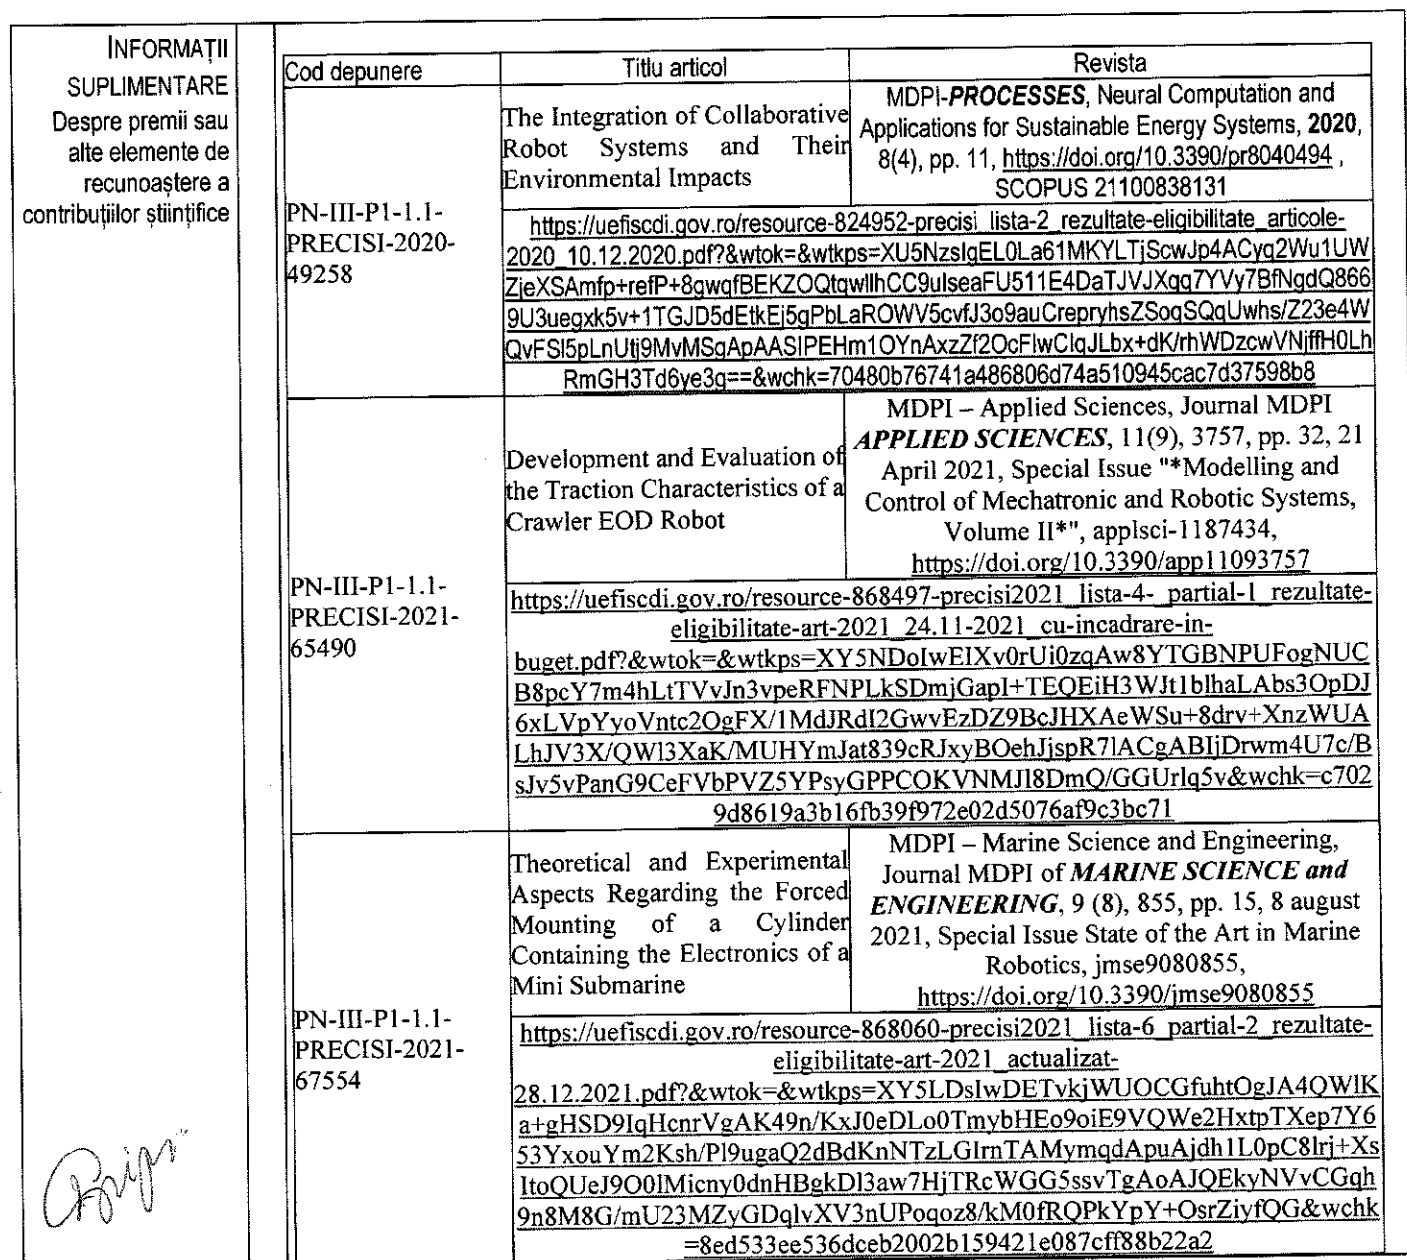 INFORMAȚII
SUPLIMENTARE
Despre premii sau
alte elemente de
recunoaștere a
contribuțiilor științifice
Cod depunere
Titlu articol
Revista
PN-III-P1-1.1-
PRECISI-2020-
49258
The Integration of Collaborative
Robot Systems and Their
Environmental Impacts
MDPI-PROCESSES, Neural Computation and
Applications for Sustainable Energy Systems, 2020,
8(4), pp. 11, https://doi.org/10.3390/pr8040494 ,
SCOPUS 21100838131
https://uefiscdi.gov.ro/resource-824952-precisi_lista-2_rezultate-eligibilitate_articole-
2020_10.12.2020.pdf?&wtok=&wtkps=XU5NzsIgEL0La61MKYLTjScwJp4ACyq2Wu1UW
ZjeXSAmfp+refP+8gwqfBEKZOQtqwllhCC9ulseaFU511E4DaTJVJXqq7YVy7BfNgdQ866
9U3uegxk5v+1TGJD5dEtkEj5gPbLaROWV5cvfJ3o9auCrepryhsZSoqSQqUwhs/Z23e4W
QvFSI5pLnUtj9MvMSgApAASIPEHm1OYnAxzZf2OcFlwClqJLbx+dK/rhWDzcwVNjffH0Lh
RmGH3Td6ye3q==&wchk=70480b76741a486806d74a510945cac7d37598b8
PN-III-P1-1.1-
PRECISI-2021-
65490
Development and Evaluation of
the Traction Characteristics of a
Crawler EOD Robot
MDPI – Applied Sciences, Journal MDPI
APPLIED SCIENCES, 11(9), 3757, pp. 32, 21
April 2021, Special Issue "*Modelling and
Control of Mechatronic and Robotic Systems,
Volume II*", applsci-1187434,
https://doi.org/10.3390/app11093757
https://uefiscdi.gov.ro/resource-868497-precisi2021_lista-4-_partial-1_rezultate-
eligibilitate-art-2021_24.11-2021_cu-incadrare-in-
buget.pdf?&wtok=&wtkps=XY5NDoIwEIXv0rUi0zqAw8YTGBNPUFogNUC
B8pcY7m4hLtTVvJn3vpeRFNPLkSDmjGapI+TEQEiH3WJt1blhaLAbs3OpDJ
6xLVpYyoVntc2OgFX/1MdJRdI2GwvEzDZ9BcJHXAeWSu+8drv+XnzWUA
LhJV3X/QWl3XaK/MUHYmJat839cRJxyBOehJjspR7lACgABIjDrwm4U7c/B
sJv5vPanG9CeFVbPVZ5YPsyGPPCOKVNMJl8DmQ/GGUrlq5v&wchk=c702
9d8619a3b16fb39f972e02d5076af9c3bc71
PN-III-P1-1.1-
PRECISI-2021-
67554
Theoretical and Experimental
Aspects Regarding the Forced
Mounting of a Cylinder
Containing the Electronics of a
Mini Submarine
MDPI – Marine Science and Engineering,
Journal MDPI of MARINE SCIENCE and
ENGINEERING, 9 (8), 855, pp. 15, 8 august
2021, Special Issue State of the Art in Marine
Robotics, jmse9080855,
https://doi.org/10.3390/jmse9080855
https://uefiscdi.gov.ro/resource-868060-precisi2021_lista-6_partial-2_rezultate-
eligibilitate-art-2021_actualizat-
28.12.2021.pdf?&wtok=&wtkps=XY5LDsIwDETvkjWUOCGfuhtOgJA4QWlK
a+gHSD9IqHcnrVgAK49n/KxJ0eDLo0TmybHEo9oiE9VQWe2HxtpTXep7Y6
53YxouYm2Ksh/Pl9ugaQ2dBdKnNTzLGIrnTAMymqdApuAjdh1L0pC8lrj+Xs
ItoQUeJ9O0lMicny0dnHBgkDl3aw7HjTRcWGG5ssvTgAoAJQEkyNVvCGqh
9n8M8G/mU23MZyGDqlvXV3nUPoqoz8/kM0fRQPkYpY+OsrZiyfQG&wchk
=8ed533ee536dceb2002b159421e087cff88b22a2